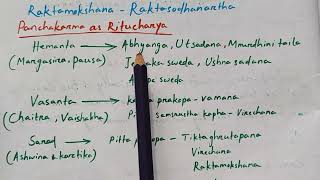 Raktamokshana - Raktasodhanartha
Panchakarma as Ritucharya
Hemanta → Abhyanga, Utsadana, Mmurdhini taila
(Margasira, pausa) Je ka sweda, Ushna sadana
pe sweda
Vasanta → ka prakopa - vamana
(Chaitra, Vaishabha) Pi samsrustha kapha - Virechana
Sarad → Pitta p opa - Tiktaghrutapana
(Ashwina & karetika) Virechana
Raktamokshana